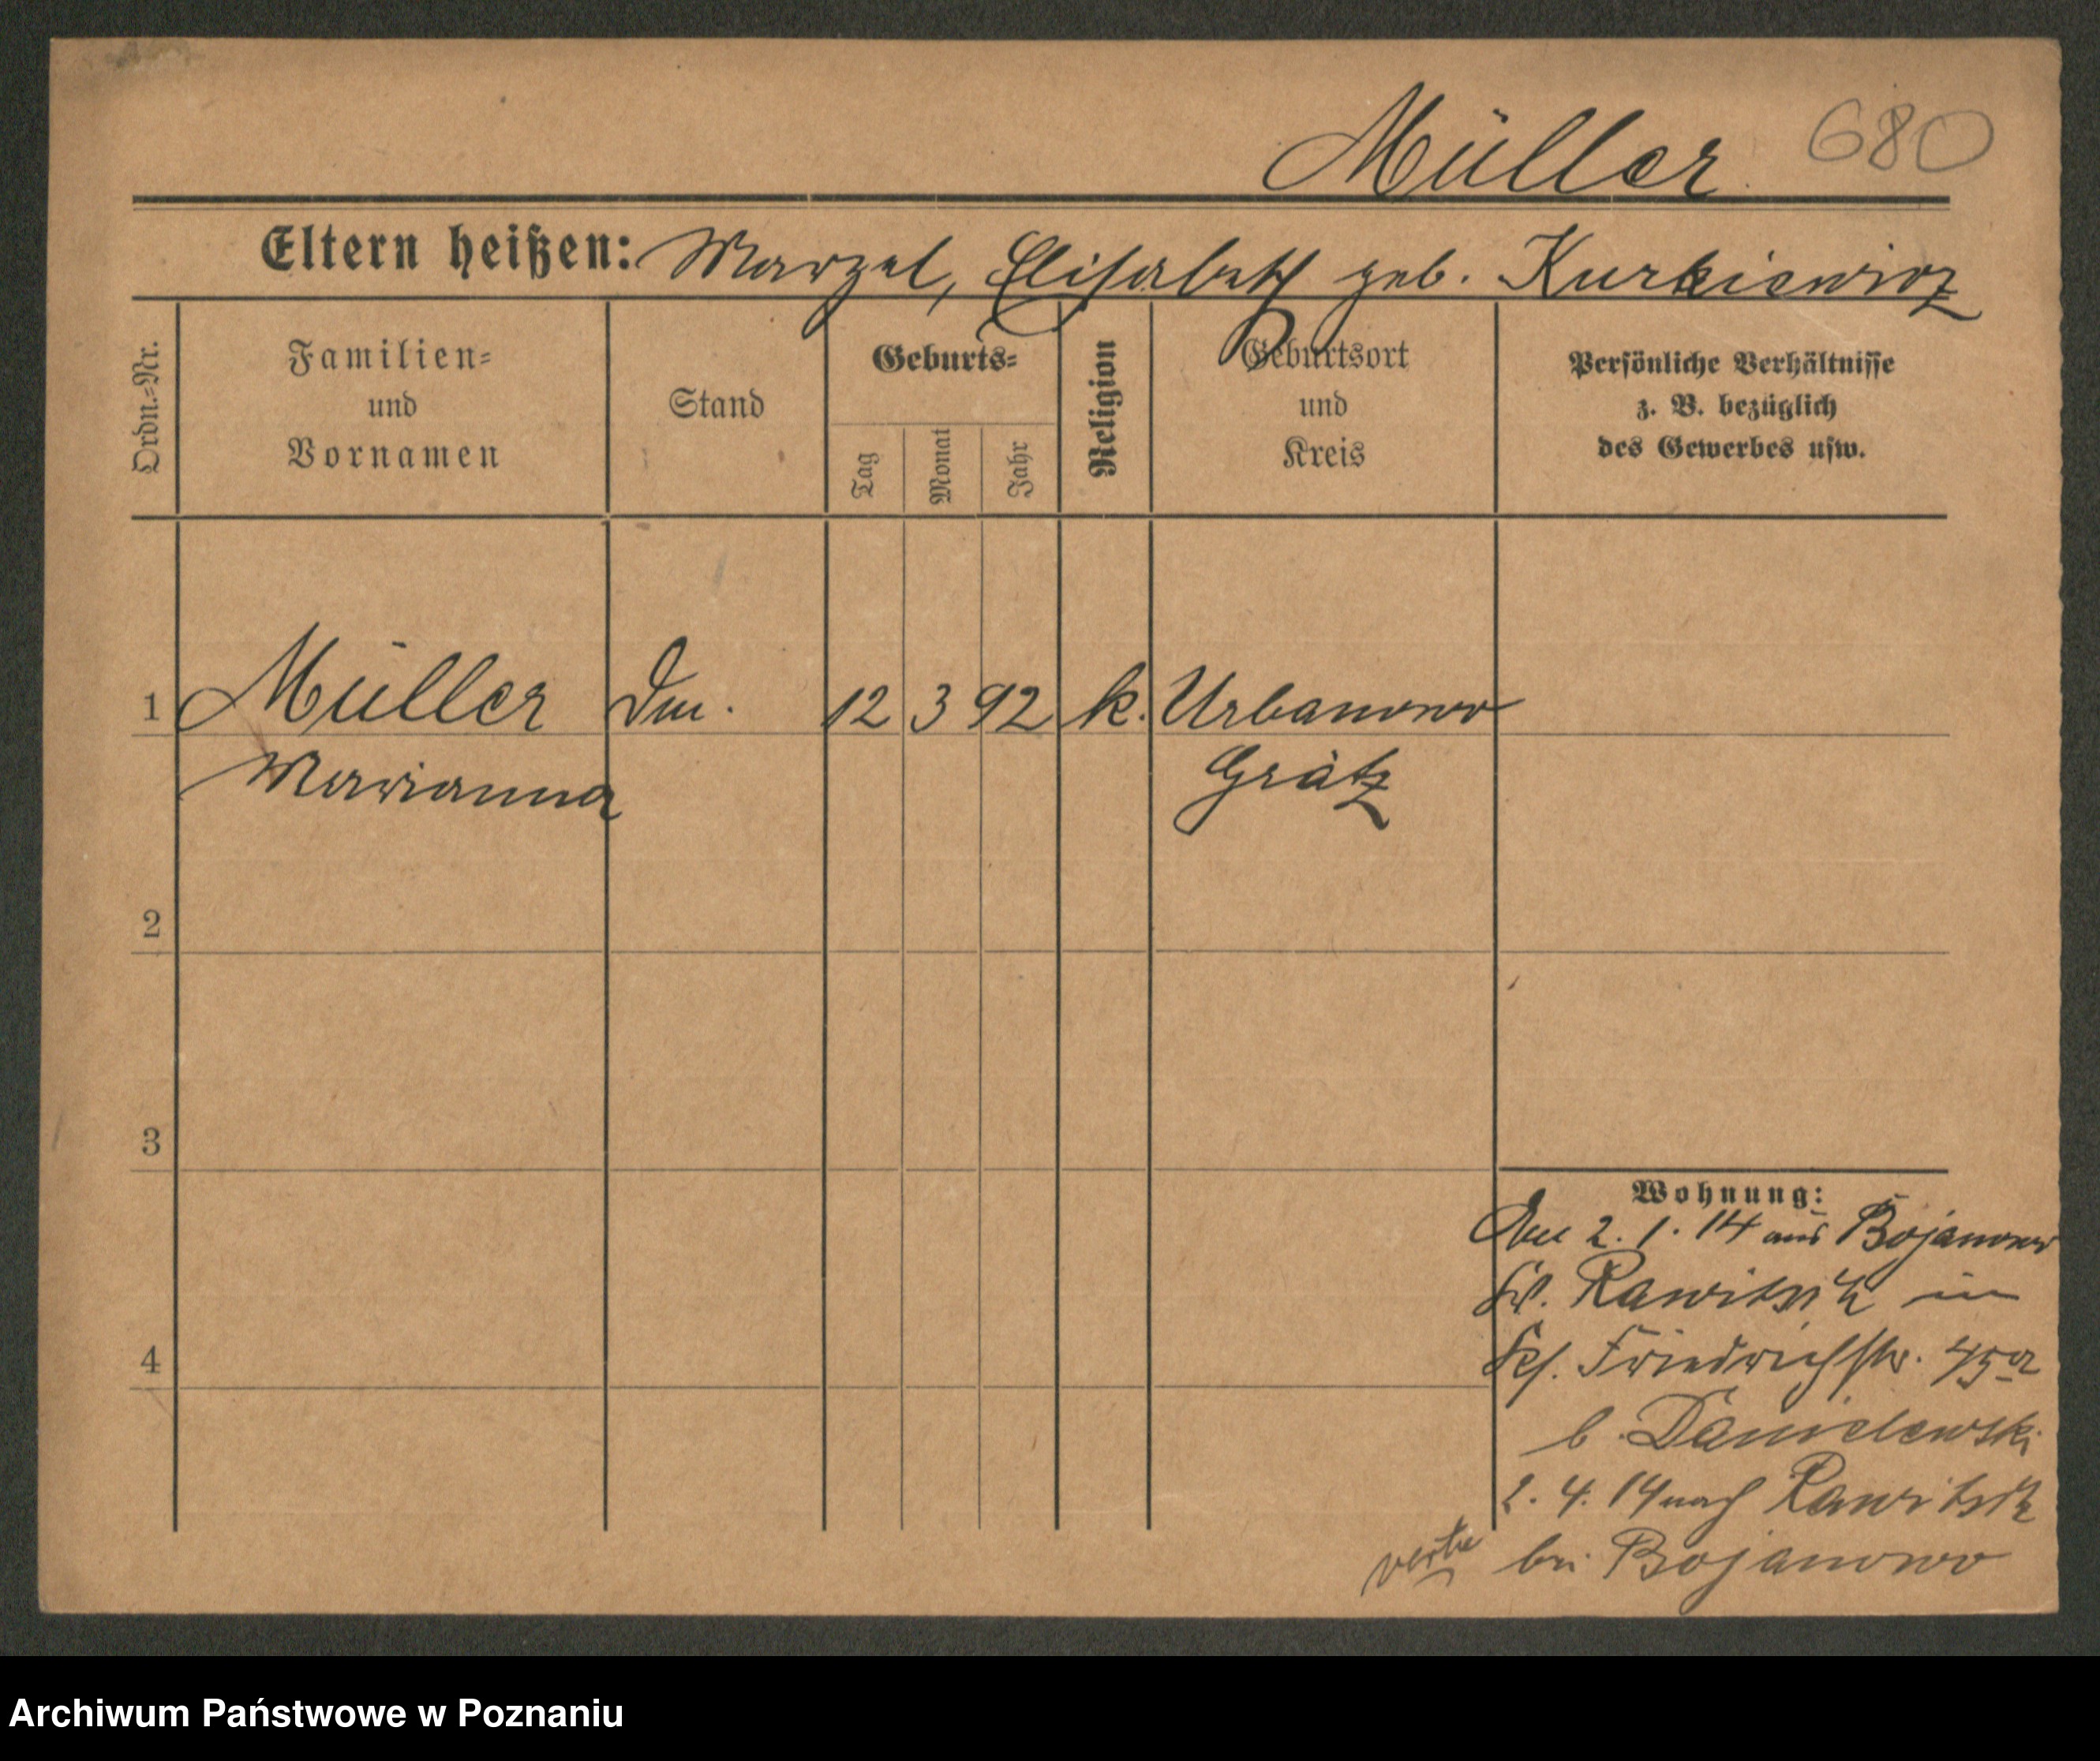 Müller 680
Eltern heißen: Marzel, Elisabeth geb. Kurkiewicz
Ordn.-Nr.
Familien-
und
Vornamen
Stand
Geburts-
Tag
Monat
Jahr
Religion
Geburtsort
und
Kreis
Persönliche Verhältnisse
z. B. bezüglich
des Gewerbes usw.
1 Müller 12 3 92 k. Urbanowo
Marianna Grätz
2
3
Wohnung:
2. 1. 14 aus Bojanowo
Rawitsch in
4
Friedrichstr. 45a
b. Danielewski
2. 4. 14 nach Rawitsch
bei Bojanowo
Archiwum Państwowe w Poznaniu